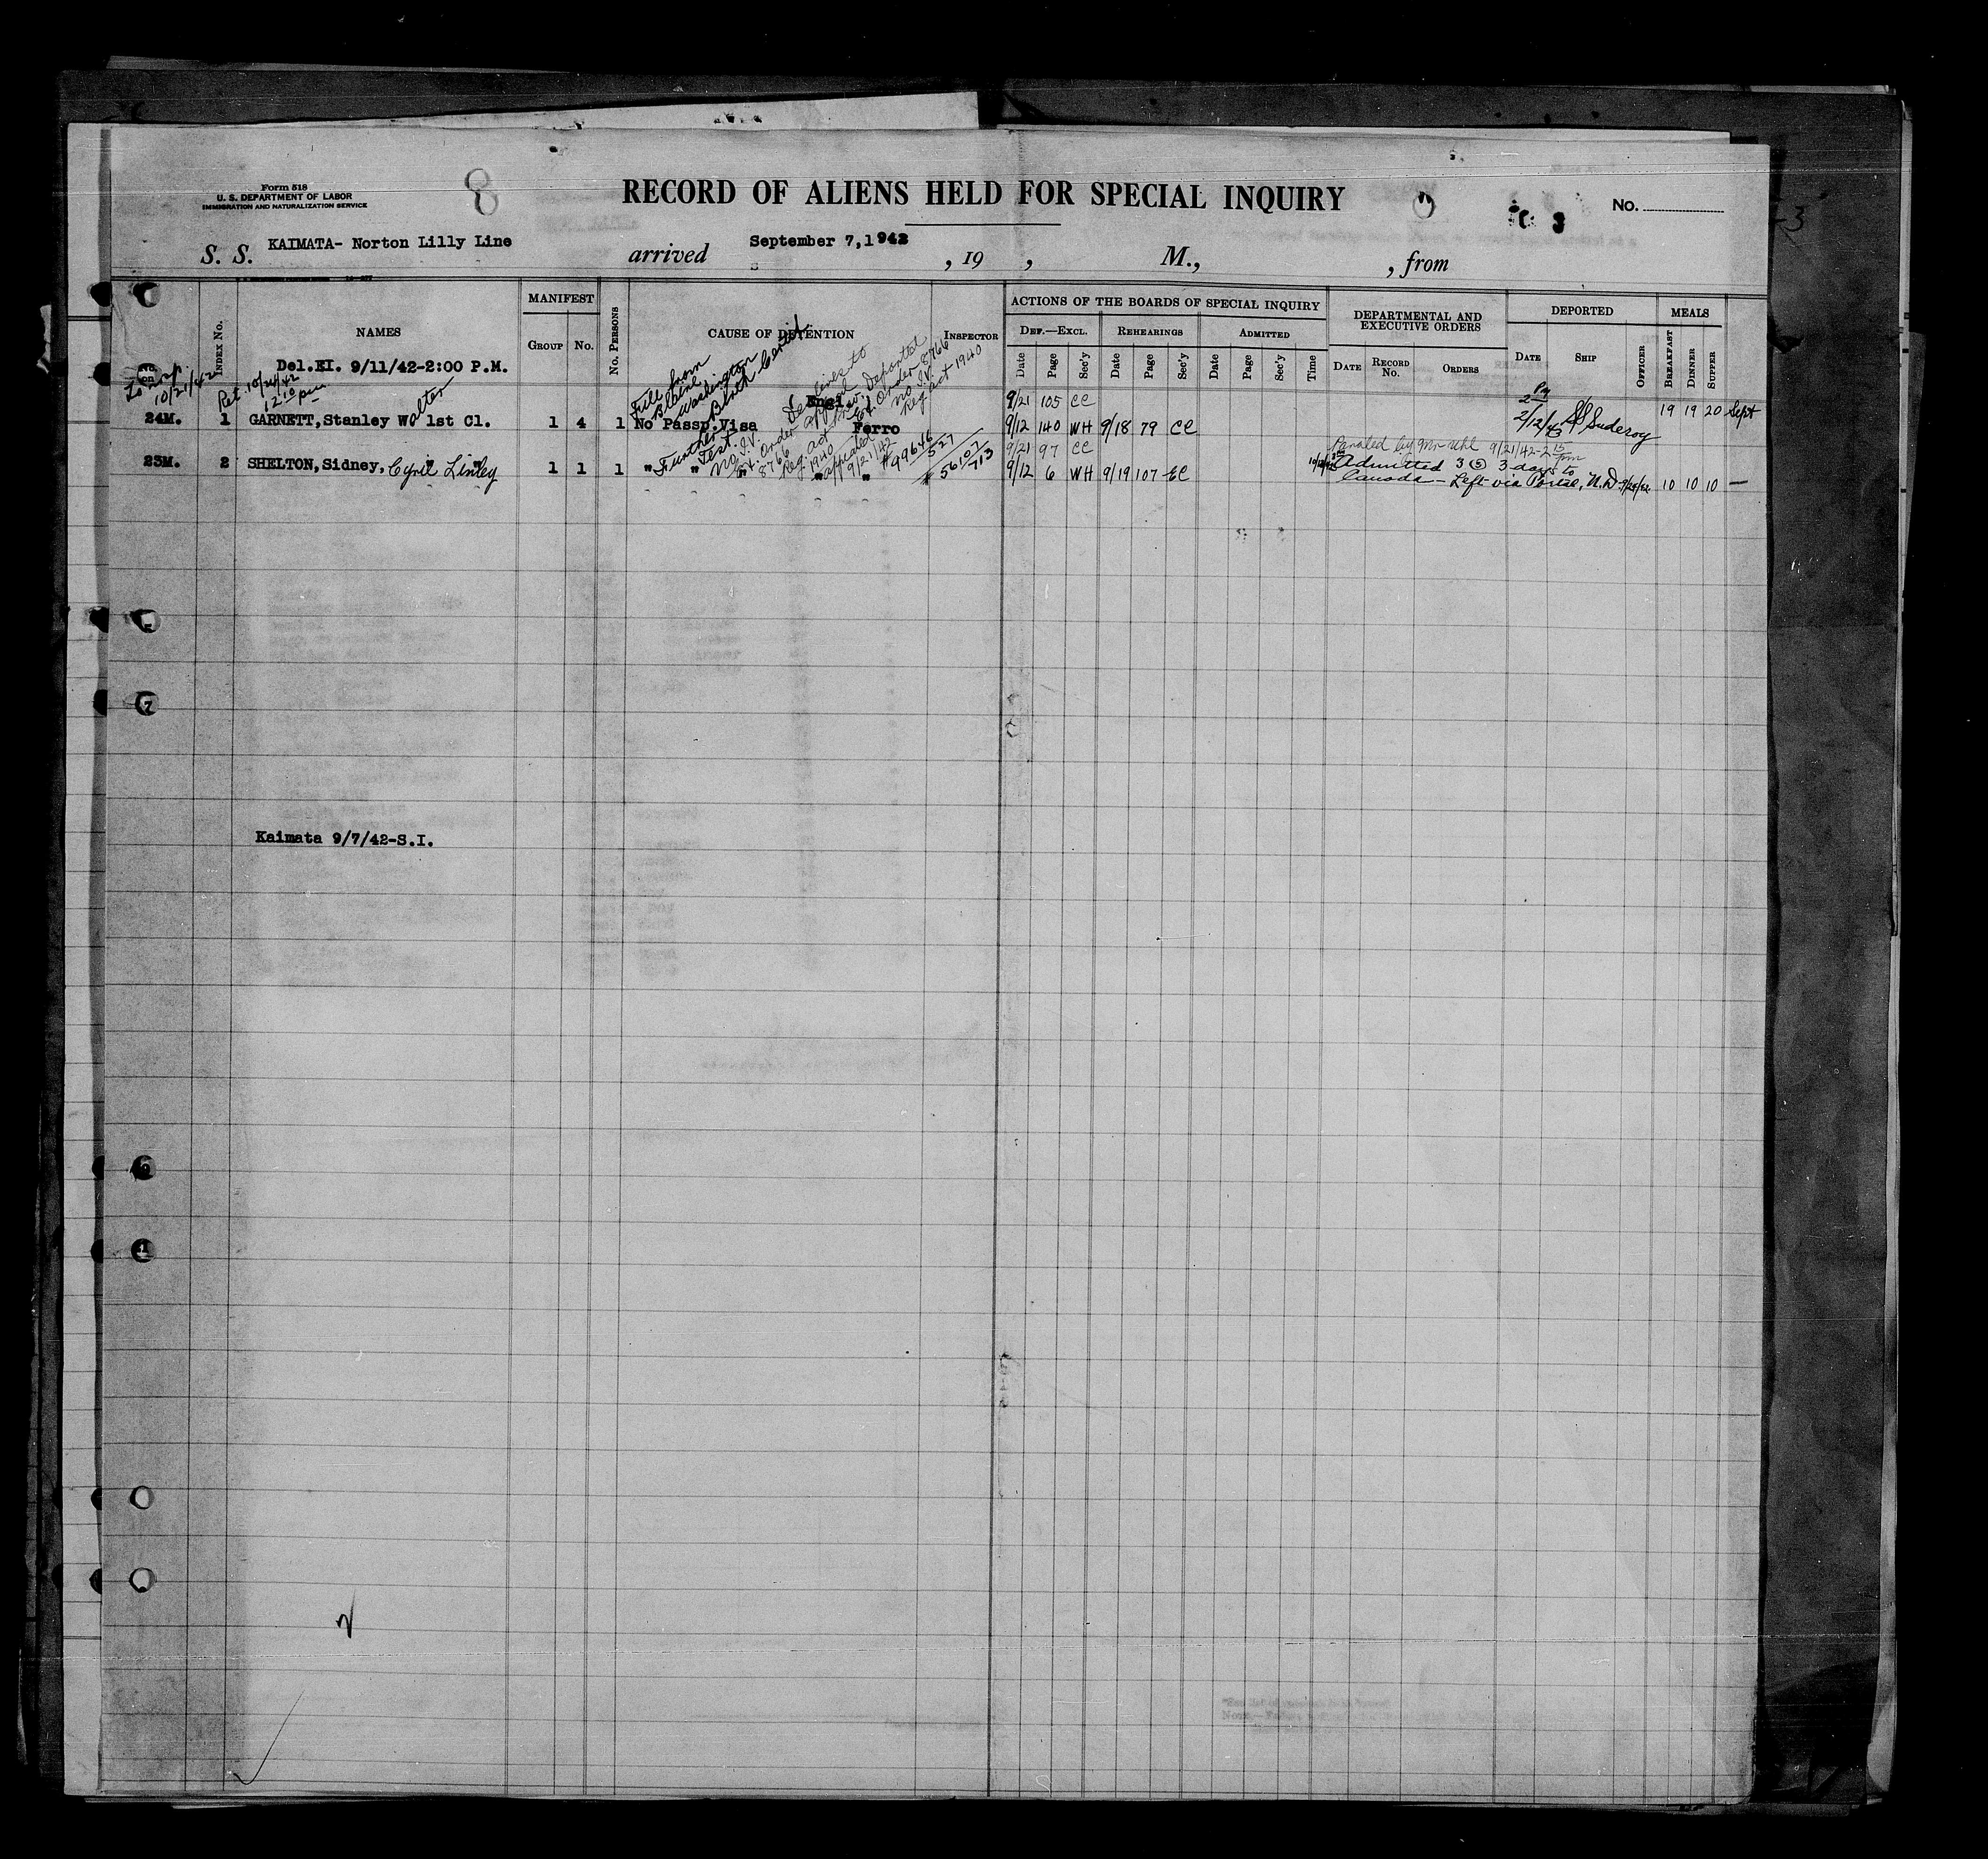 Form 518
U. S. DEPARTMENT OF LABOR
IMMIGRATION AND NATURALIZATION SERVICE
8
RECORD OF ALIENS HELD FOR SPECIAL INQUIRY
No.
S. S. KAIMATA- Norton Lilly Line arrived September 7,1942 , 19 , M., , from
INDEX No.
NAMES
MANIFEST
GROUP No.
No. PERSONS
CAUSE OF DETENTION
INSPECTOR
ACTIONS OF THE BOARDS OF SPECIAL INQUIRY
DEF.—EXCL. REHEARINGS ADMITTED
Date Page Sec'y Date Page Sec'y Date Page Sec'y Time
DEPARTMENTAL AND EXECUTIVE ORDERS
DATE RECORD No. ORDERS
DEPORTED
DATE SHIP OFFICER
MEALS
BREAKFAST DINNER SUPPER
Del.EI. 9/11/42-2:00 P.M.
10/21/42
Ret. 10/24/42
12 10 pm
File from
Blaine
Washington
Birth Certif.
Deported
Ex. Order 8766
No I.V.
Reg Act 1940
Engl.
9/21 105 CC
2 PM
24M. 1 GARNETT,Stanley W. Walter 1st Cl. 1 4 1 No Passp.Visa Ferro 9/12 140 WH 9/18 79 CC 2/12/43 SS Suderoy 19 19 20 Sept
Further
Test.
No I.V.
Ex. Order
8766
Reg. Act
1940
appealed
9/21/42
# 99646
527
# 56107
713
9/21 97 CC
Paroled by Mr Uhl 9/21/42-2 15 pm
23M. 2 SHELTON,Sidney, Cyril Linley " " 1 1 1 " " " " 9/12 6 WH 9/19 107 EC Admitted 3 (5) 3 days to
Canada - Left via Portal, N.D 10 10 10 —
Kaimata 9/7/42-S.I.